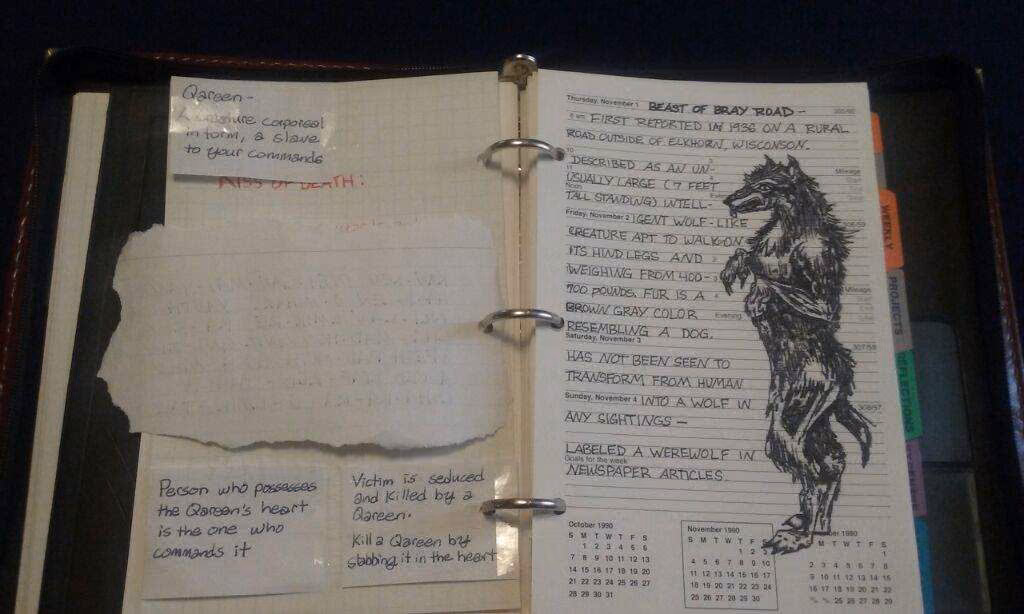 Qareen-
A creature corporeal
in form, a slave
to your commands
KISS OF DEATH:
Person who possesses
the Qareen's heart
is the one who
commands it
Victim is seduced
and killed by a
Qareen.
Kill a Qareen by
stabbing it in the heart
Thursday, November 1
BEAST OF BRAY ROAD -
FIRST REPORTED IN 1936 ON A RURAL
ROAD OUTSIDE OF ELKHORN, WISCONSON.
DESCRIBED AS AN UN-
USUALLY LARGE (7 FEET
Mileage
Noon
TALL STANDING) INTELL-
Friday, November 2
IGENT WOLF-LIKE
CREATURE APT TO WALK ON
ITS HIND LEGS AND
WEIGHING FROM 400-
Mileage
700 POUNDS. FUR IS A
BROWN GRAY COLOR
Evening
RESEMBLING A DOG.
Saturday, November 3
307/58
HAS NOT BEEN SEEN TO
TRANSFORM FROM HUMAN
Sunday, November 4
INTO A WOLF IN
308/57
ANY SIGHTINGS -
LABELED A WEREWOLF IN
Goals for the week
NEWSPAPER ARTICLES
October 1990
S M T W T F S
1 2 3 4 5 6
7 8 9 10 11 12 13
14 15 16 17 18 19 20
21 22 23 24 25 26 27
28 29 30 31
November 1990
S M T W T F S
1 2 3
4 5 6 7 8 9 10
11 12 13 14 15 16 17
18 19 20 21 22 23 24
25 26 27 28 29 30
1990
M T W T F S
1
2 3 4 5 6 7 8
9 10 11 12 13 14 15
16 17 18 19 20 21 22
25 26 27 28 29
WEEKLY
PROJECTS
REFLECTIONS